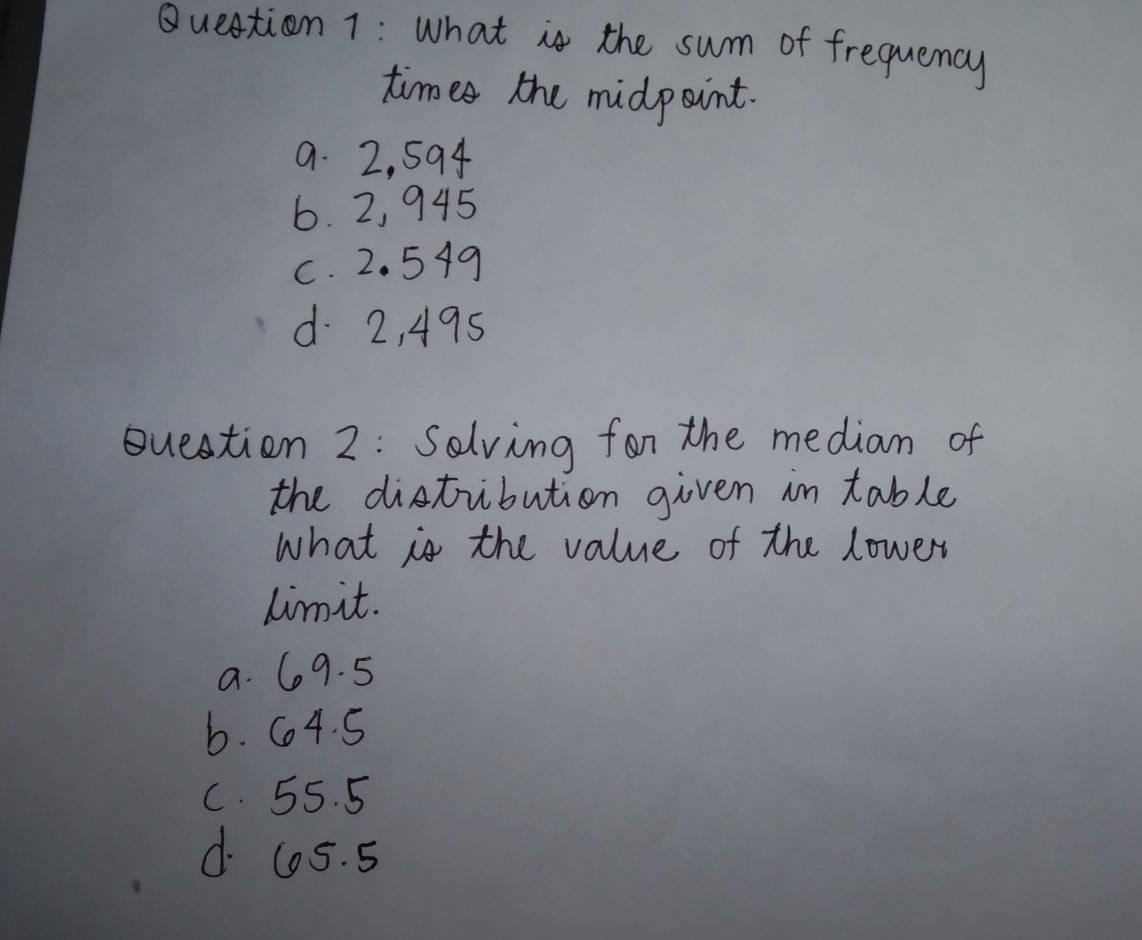 Question 1: What is the sum of frequency
times the midpoint.
a. 2,594
b. 2,945
c. 2.549
d. 2,495
Question 2: Solving for the median of
the distribution given in table
What is the value of the lower
limit.
a. 69.5
b. 64.5
c. 55.5
d. 65.5